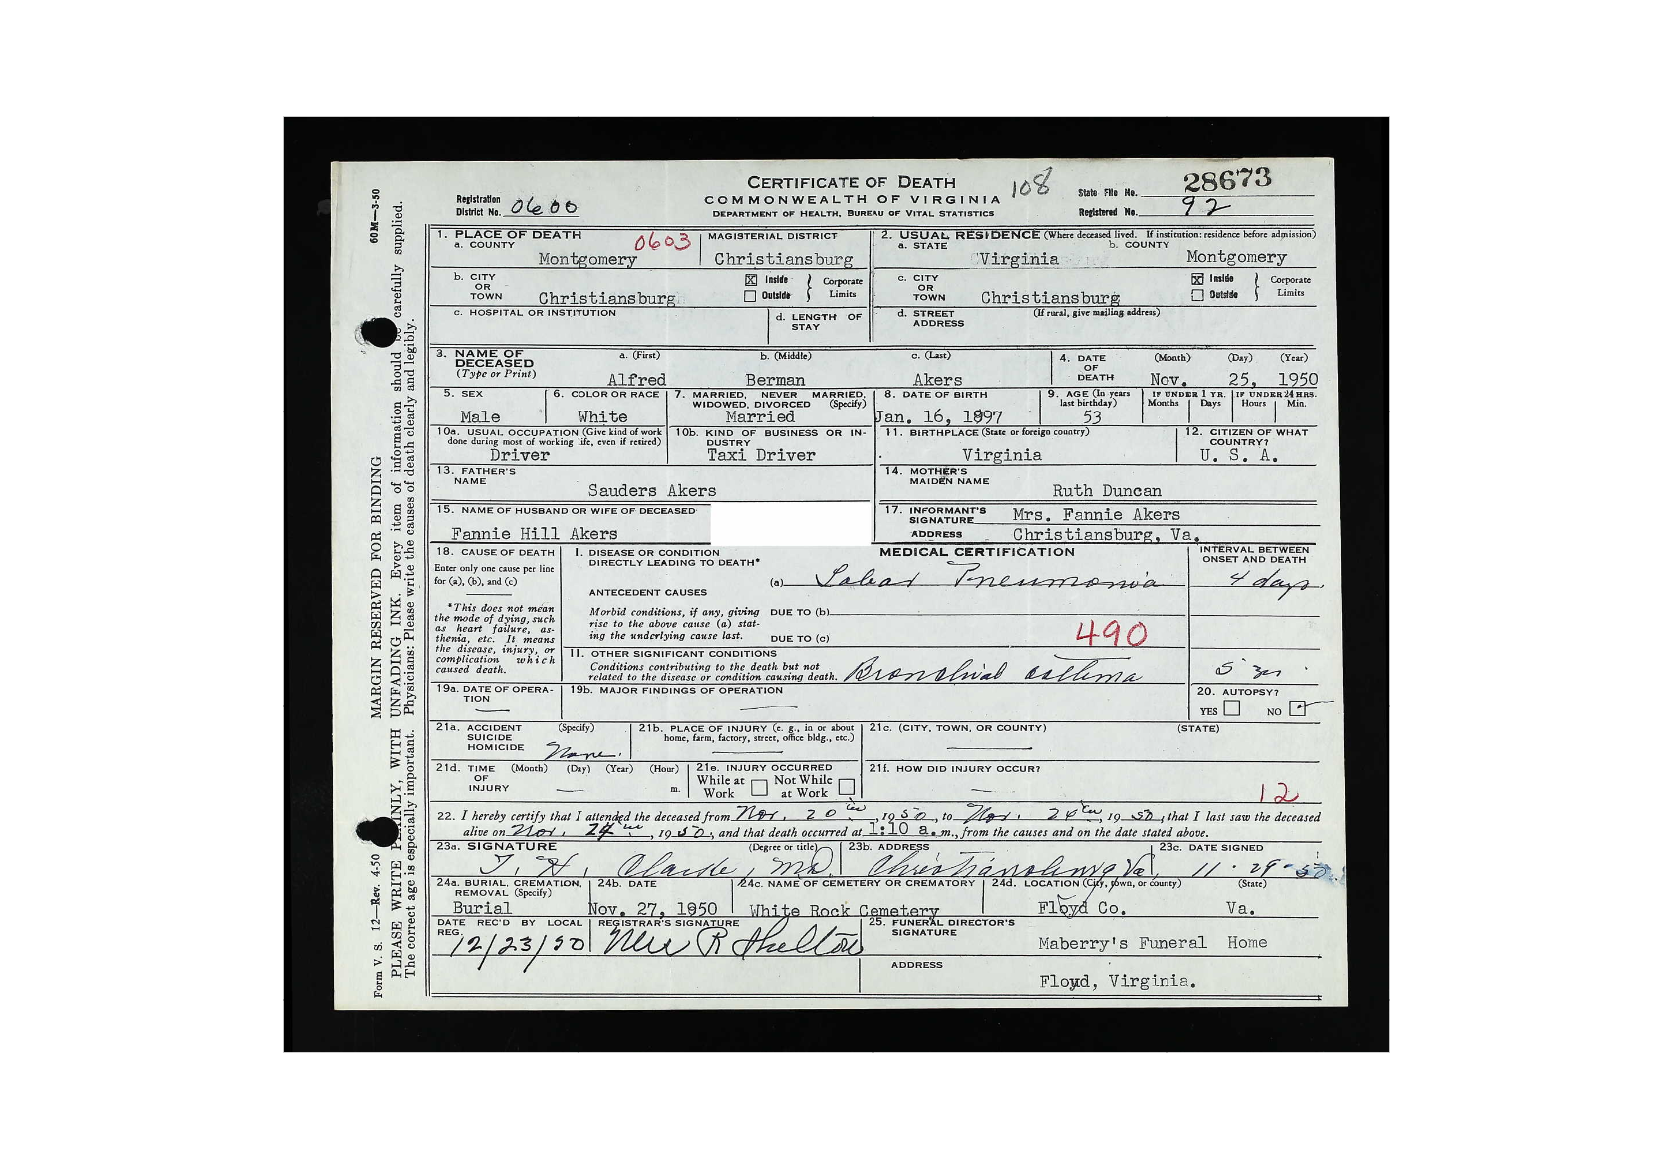 CERTIFICATE OF DEATH
COMMONWEALTH OF VIRGINIA
DEPARTMENT OF HEALTH, BUREAU OF VITAL STATISTICS
Registration District No. 0600
108
State File No. 28673
Registered No. 92
60M—3-50
MARGIN RESERVED FOR BINDING
PLEASE WRITE PLAINLY, WITH UNFADING INK. Every item of information should be carefully supplied.
The correct age is especially important. Physicians: Please write the causes of death clearly and legibly.
Form V. S. 12—Rev. 4-50
1. PLACE OF DEATH
a. COUNTY 0603
Montgomery
MAGISTERIAL DISTRICT
Christiansburg
2. USUAL RESIDENCE (Where deceased lived. If institution: residence before admission)
a. STATE
Virginia
b. COUNTY
Montgomery
b. CITY OR TOWN Christiansburg
☒ Inside ☐ Outside Corporate Limits
c. CITY OR TOWN Christiansburg
☒ Inside ☐ Outside Corporate Limits
c. HOSPITAL OR INSTITUTION
d. LENGTH OF STAY
d. STREET ADDRESS (If rural, give mailing address)
3. NAME OF DECEASED (Type or Print)
a. (First) b. (Middle) c. (Last)
Alfred Berman Akers
4. DATE OF DEATH (Month) (Day) (Year)
Nov. 25, 1950
5. SEX
Male
6. COLOR OR RACE
White
7. MARRIED, NEVER MARRIED, WIDOWED, DIVORCED (Specify)
Married
8. DATE OF BIRTH
Jan. 16, 1897
9. AGE (In years last birthday)
53
IF UNDER 1 YR. Months Days
IF UNDER 24 HRS. Hours Min.
10a. USUAL OCCUPATION (Give kind of work done during most of working life, even if retired)
Driver
10b. KIND OF BUSINESS OR INDUSTRY
Taxi Driver
11. BIRTHPLACE (State or foreign country)
Virginia
12. CITIZEN OF WHAT COUNTRY?
U. S. A.
13. FATHER'S NAME
Sauders Akers
14. MOTHER'S MAIDEN NAME
Ruth Duncan
15. NAME OF HUSBAND OR WIFE OF DECEASED
Fannie Hill Akers
17. INFORMANT'S SIGNATURE Mrs. Fannie Akers
ADDRESS Christiansburg, Va.
18. CAUSE OF DEATH
Enter only one cause per line for (a), (b), and (c)
*This does not mean the mode of dying, such as heart failure, asthenia, etc. It means the disease, injury, or complication which caused death.
MEDICAL CERTIFICATION
INTERVAL BETWEEN ONSET AND DEATH
I. DISEASE OR CONDITION DIRECTLY LEADING TO DEATH*
(a) Lobar Pneumonia 4 days
ANTECEDENT CAUSES
Morbid conditions, if any, giving rise to the above cause (a) stating the underlying cause last.
DUE TO (b)
DUE TO (c) 490
II. OTHER SIGNIFICANT CONDITIONS
Conditions contributing to the death but not related to the disease or condition causing death. Bronchial asthma 5 yrs.
19a. DATE OF OPERATION
19b. MAJOR FINDINGS OF OPERATION
20. AUTOPSY?
YES ☐ NO ☑
21a. ACCIDENT SUICIDE HOMICIDE (Specify) None.
21b. PLACE OF INJURY (e. g., in or about home, farm, factory, street, office bldg., etc.)
21c. (CITY, TOWN, OR COUNTY) (STATE)
21d. TIME OF INJURY (Month) (Day) (Year) (Hour) m.
21e. INJURY OCCURRED
While at Work ☐ Not While at Work ☐
21f. HOW DID INJURY OCCUR?
12
22. I hereby certify that I attended the deceased from Nov. 20th, 1950, to Nov. 24th, 1950, that I last saw the deceased
alive on Nov. 24th, 1950, and that death occurred at 1:10 a.m., from the causes and on the date stated above.
23a. SIGNATURE (Degree or title)
T. H. MD.
23b. ADDRESS
Christiansburg Va.
23c. DATE SIGNED
11-29-50
24a. BURIAL, CREMATION, REMOVAL (Specify)
Burial
24b. DATE
Nov. 27, 1950
24c. NAME OF CEMETERY OR CREMATORY
White Rock Cemetery
24d. LOCATION (City, town, or county) (State)
Floyd Co. Va.
DATE REC'D BY LOCAL REG.
12/23/50
REGISTRAR'S SIGNATURE
R Shelton
25. FUNERAL DIRECTOR'S SIGNATURE
Maberry's Funeral Home
ADDRESS
Floyd, Virginia.